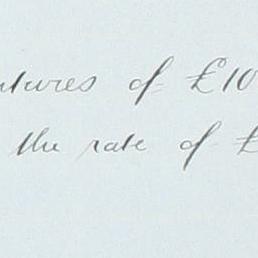 ntures of £10
the rate of £